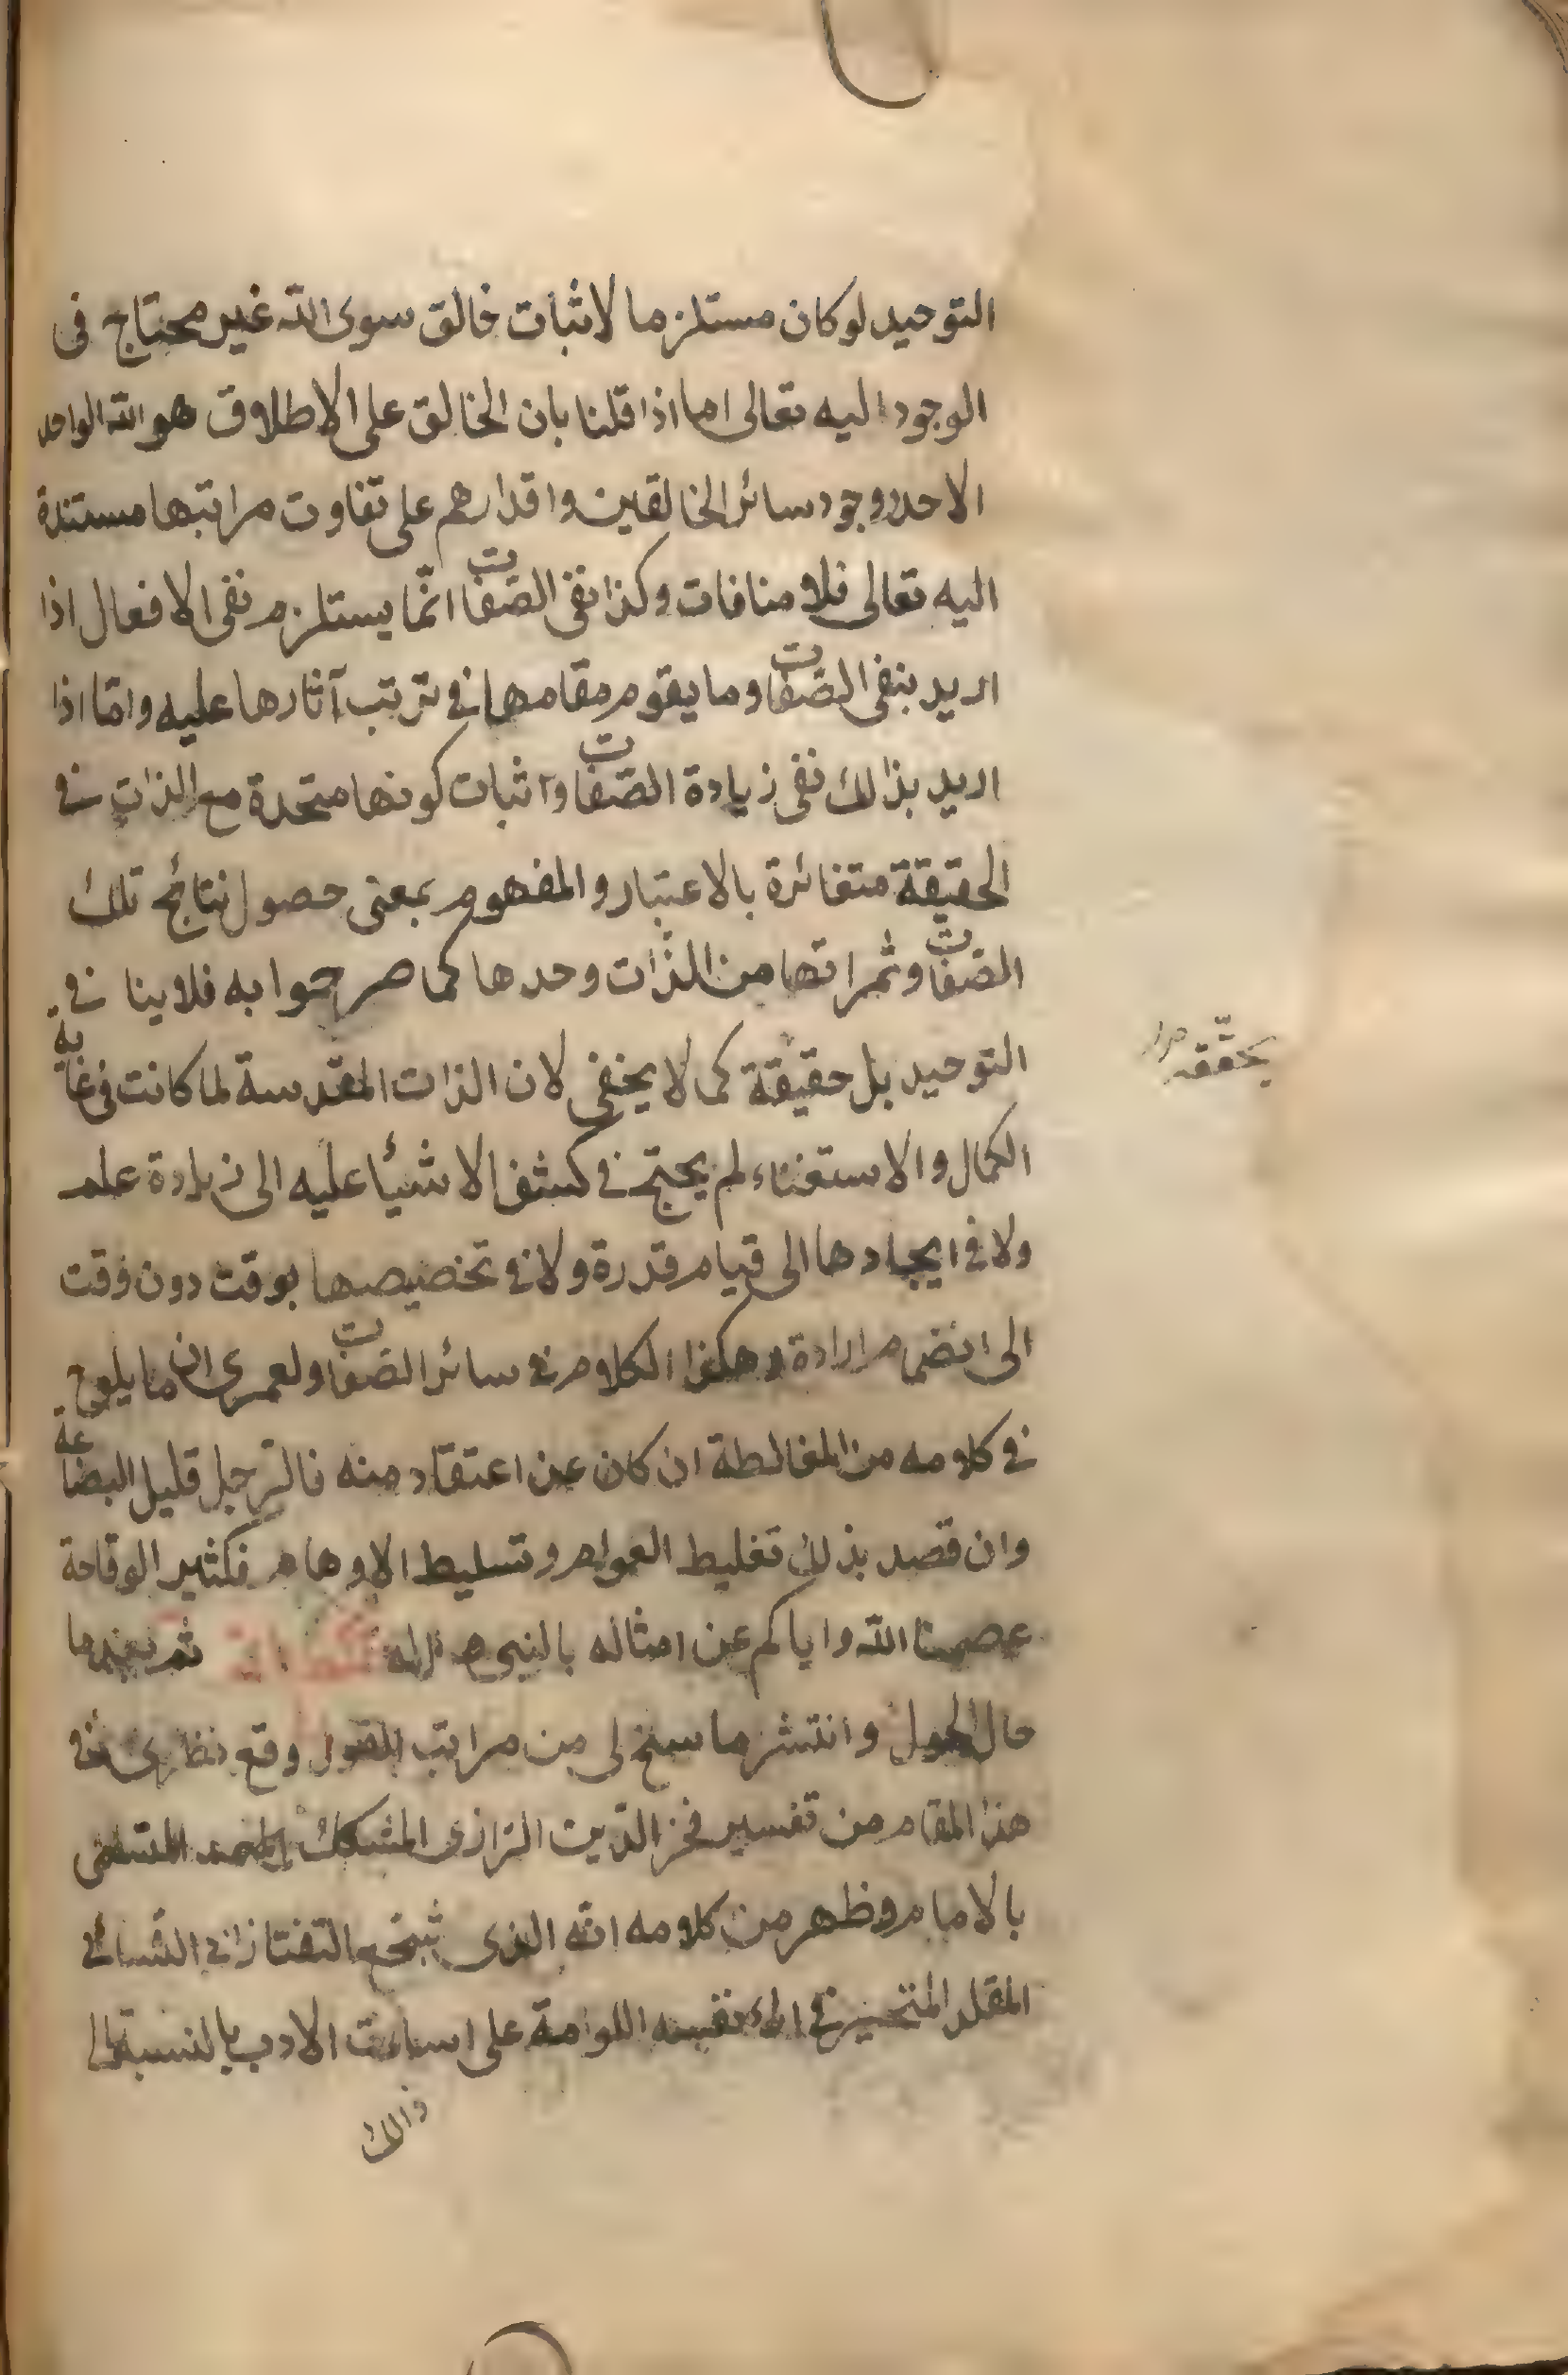 التوحيد لو كان مستلزما لاثبات خالق سوى الله غير محتاج فى
الوجود اليه تعالى اما اذا قلنا بان الخالق على الاطلاق هو الله الواحد
الاحد ووجود سائر الخالقين واقدارهم على تفاوت مراتبها مستندة
اليه تعالى فلا منافات وكذا نفى الصّفات انّما يستلزم نفى الافعال اذا
اريد بنفى الصّفات وما يقوم مقامها فى ترتب آثارها عليه وامّا اذا
اريد بذالك نفى زيادة الصّفات واثبات كونها متحدة مع الذات فى
الحقيقة متغائرة بالاعتبار والمفهوم بمعنى حصول نتائج تلك
الصّفات وثمراتها من الذّات وحدها كما صرحوا به فلا ينافى
التوحيد بل حقيقة كما لا يخفى لان الذات المقدسة لما كانت فى غاية
يحقّقه
الكمال والاستغناء لم يحتج فى كشف الاشيأ عليه الى زيادة علم
ولا فى ايجادها الى قيام قدرة ولا فى تخصيصها بوقت دون وقت
الى انضمام ارادة وهكذا الكلام فى سائر الصّفات ولعمرى ان ما يلوح
فى كلامه من المغالطة ان كان عن اعتقاد منه فالرّجل قليل البضاعة
وان قصد بذلك تغليط العوام وتسليط الاوهام فكثير الوقاحة
عصمنا الله واياكم عن امثاله بالنبى واله ثم بعد ما
حال وانتشر ما سنح لى من مراتب وقع نظرى فى
هذا المقام من تفسير فخر الدّين الرّازى المشكك
بالامام وظهر من كلامه انّه الذى شجّع التفتازانى الشافى
المقلد المتحيز فى نفسه اللوامة على اساءت الادب بالنسبة الى
ذالك